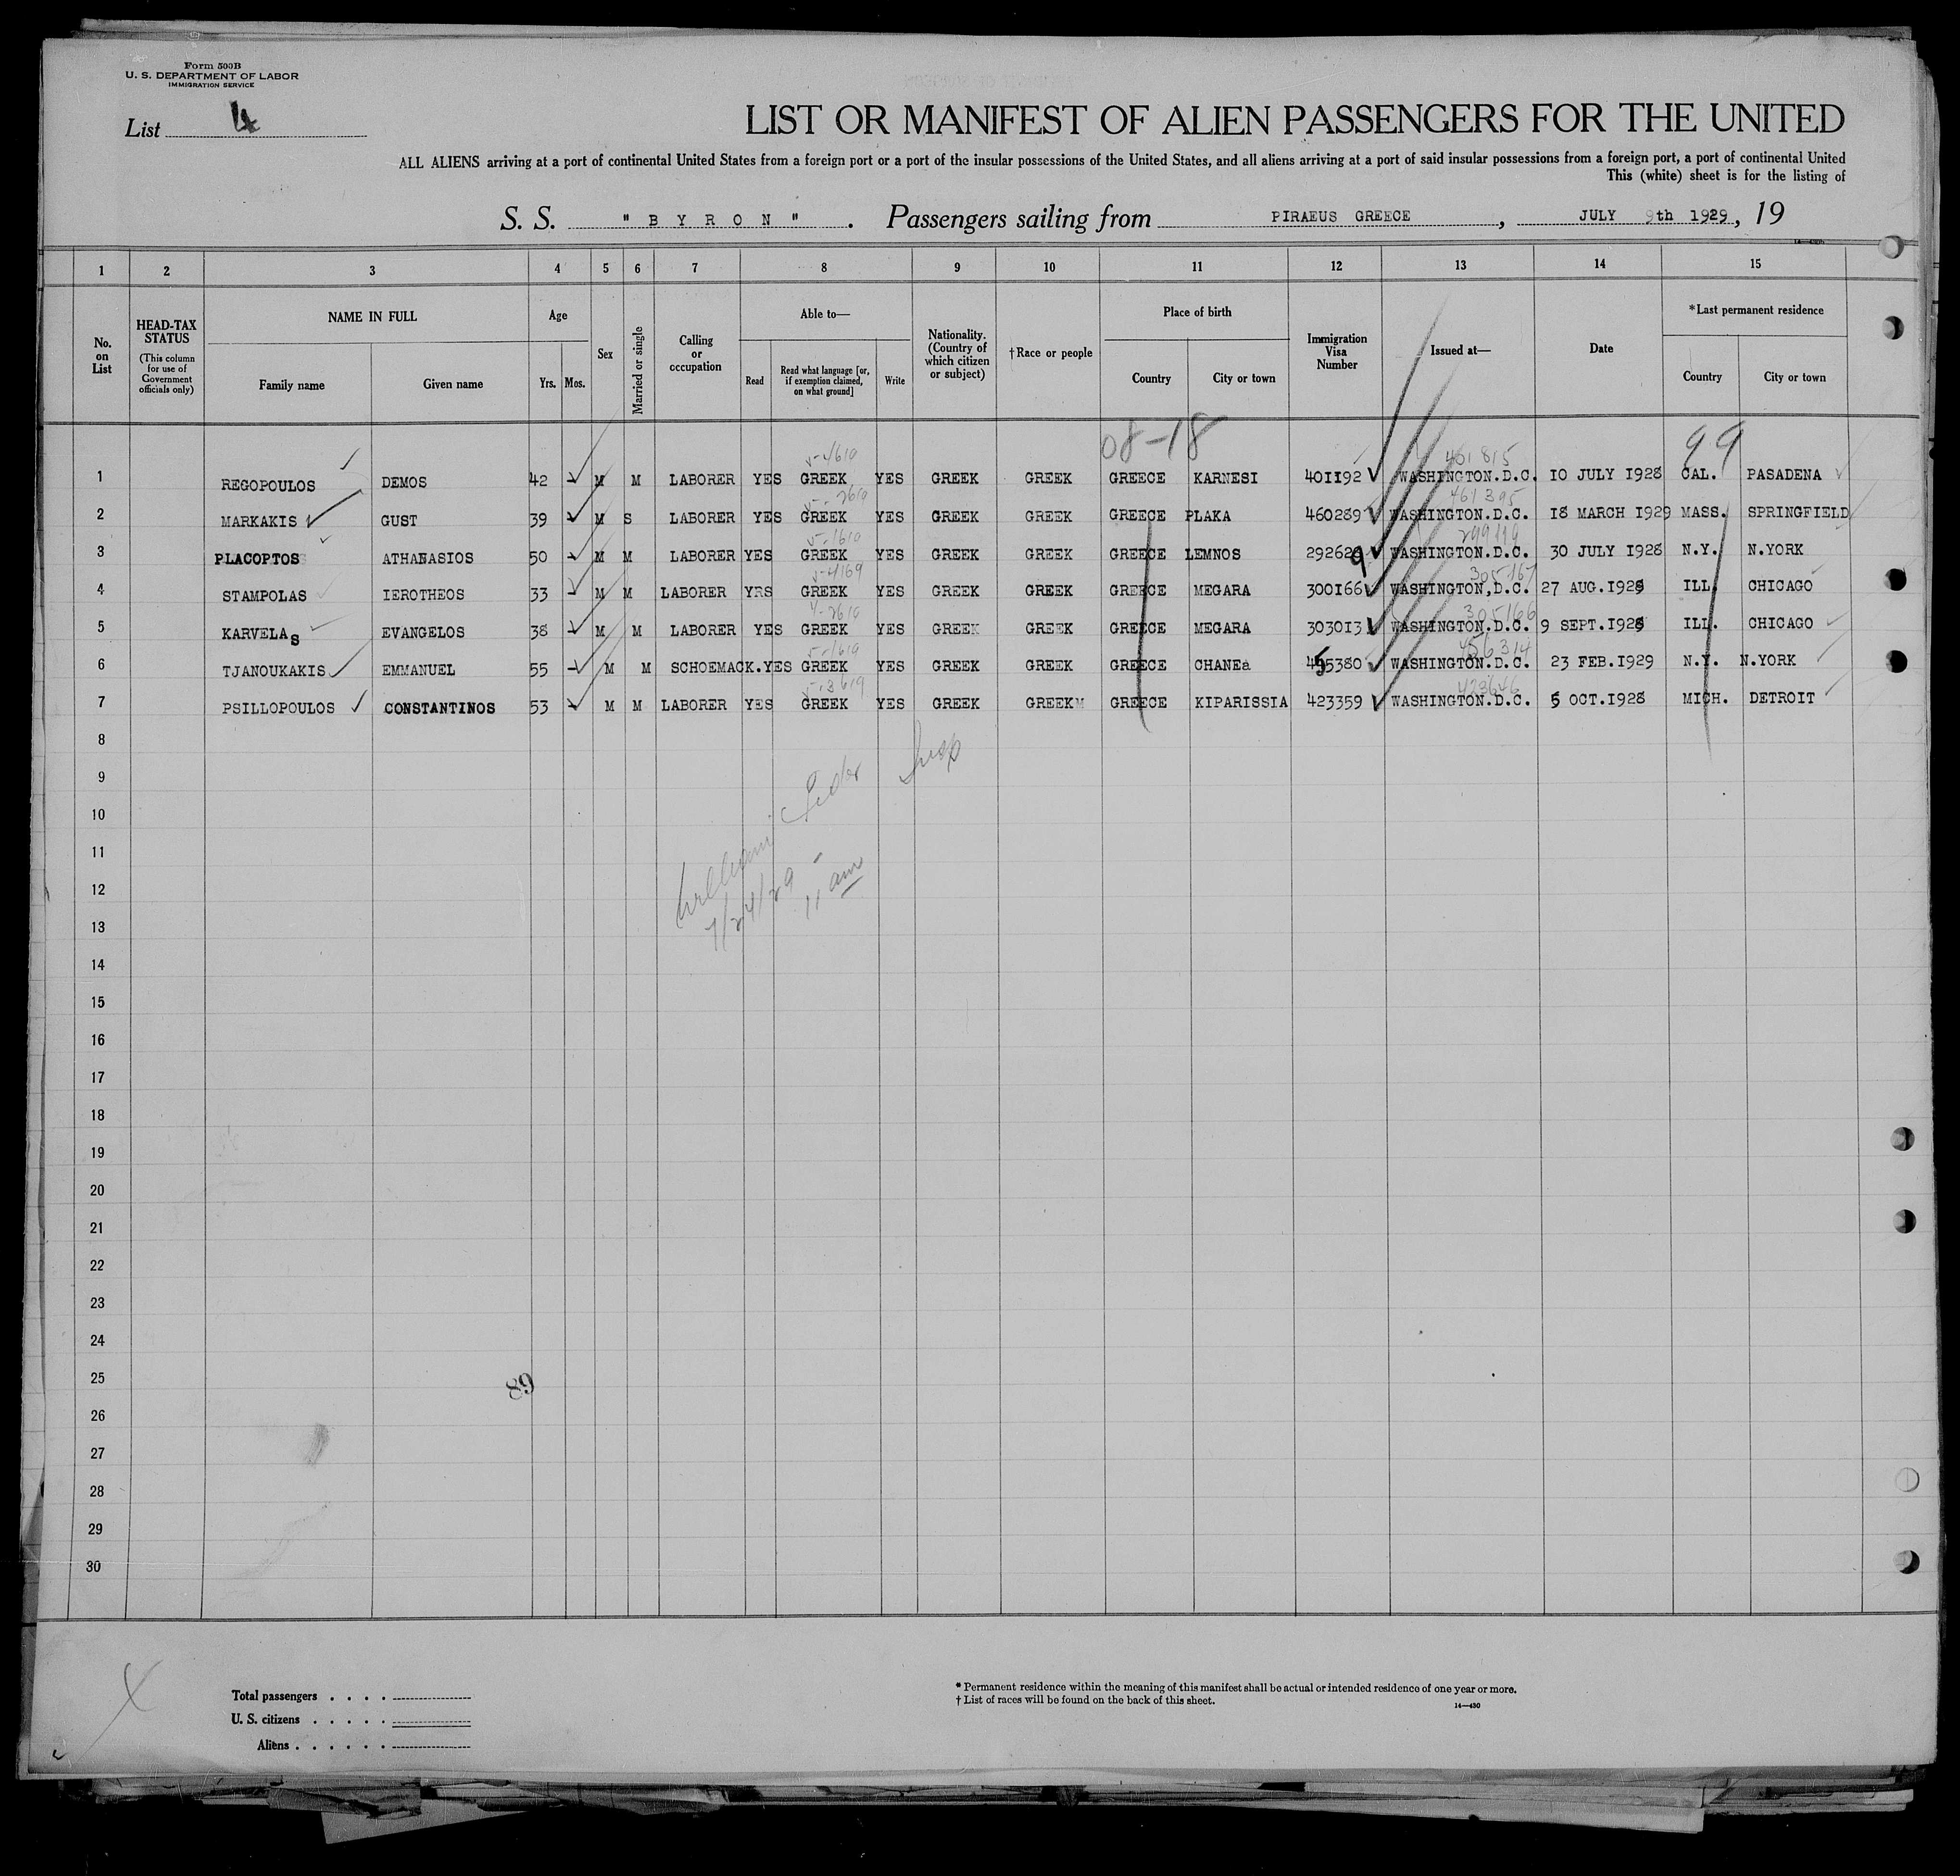 Form 500B
U. S. DEPARTMENT OF LABOR
IMMIGRATION SERVICE
List 4
LIST OR MANIFEST OF ALIEN PASSENGERS FOR THE UNITED
ALL ALIENS arriving at a port of continental United States from a foreign port or a port of the insular possessions of the United States, and all aliens arriving at a port of said insular possessions from a foreign port, a port of continental United
This (white) sheet is for the listing of
S. S. "BYRON". Passengers sailing from PIRAEUS GREECE, JULY 9th 1929, 19
1 2 3 4 5 6 7 8 9 10 11 12 13 14 15
No. on List
HEAD-TAX STATUS (This column for use of Government officials only)
NAME IN FULL
Family name Given name
Age
Yrs. Mos.
Sex
Married or single
Calling or occupation
Able to—
Read
Read what language [or, if exemption claimed, on what ground]
Write
Nationality. (Country of which citizen or subject)
†Race or people
Place of birth
Country City or town
Immigration Visa Number
Issued at—
Date
*Last permanent residence
Country City or town
08-18 99
5-4610 461815
1 REGOPOULOS DEMOS 42 M M LABORER YES GREEK YES GREEK GREEK GREECE KARNESI 401192 WASHINGTON.D.C. 10 JULY 1928 CAL. PASADENA
461395
2 MARKAKIS GUST 39 M S LABORER YES GREEK YES GREEK GREEK GREECE PLAKA 460289 WASHINGTON.D.C. 18 MARCH 1929 MASS. SPRINGFIELD
5-1610
3 PLACOPTOS ATHANASIOS 50 M M LABORER YES GREEK YES GREEK GREEK GREECE LEMNOS 292629 WASHINGTON.D.C. 30 JULY 1928 N.Y. N.YORK
5-4169 305167
4 STAMPOLAS IEROTHEOS 33 M M LABORER YRS GREEK YES GREEK GREEK GREECE MEGARA 300166 WASHINGTON,D.C. 27 AUG.1928 ILL. CHICAGO
4-2610 305166
5 KARVELAS EVANGELOS 38 M M LABORER YES GREEK YES GREEK GREEK GREECE MEGARA 303013 WASHINGTON.D.C. 9 SEPT.1928 ILL. CHICAGO
5-1619 456314
6 TJANOUKAKIS EMMANUEL 55 M M SCHOEMACK. YES GREEK YES GREEK GREEK GREECE CHANEa 455380 WASHINGTON.D.C. 23 FEB.1929 N.Y. N.YORK
5-3619 423646
7 PSILLOPOULOS CONSTANTINOS 53 M M LABORER YES GREEK YES GREEK GREEK GREECE KIPARISSIA 423359 WASHINGTON.D.C. 5 OCT.1928 MICH. DETROIT
8
9
10
11
William
12
7/24/29 - 11 am
13
14
15
16
17
18
19
20
21
22
23
24
25
89
26
27
28
29
30
Total passengers . . . .
U. S. citizens . . . . .
Aliens . . . . . .
* Permanent residence within the meaning of this manifest shall be actual or intended residence of one year or more.
† List of races will be found on the back of this sheet.
14—430